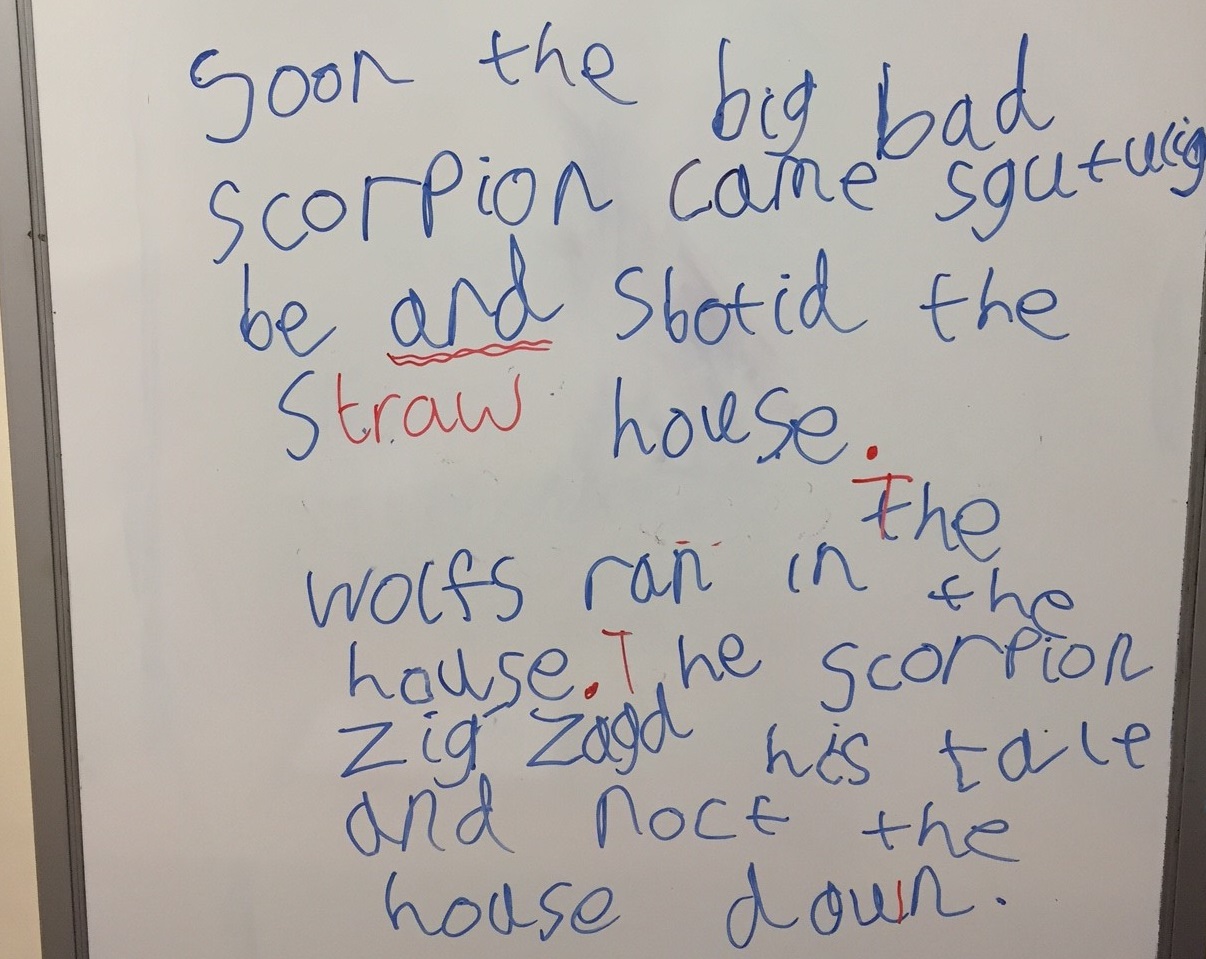 Soon the big bad
scorpion came
be and sbotid the
straw house.
The
wolfs ran in the
house. The scorpion
zig zagd his tale
and noct the
house down.